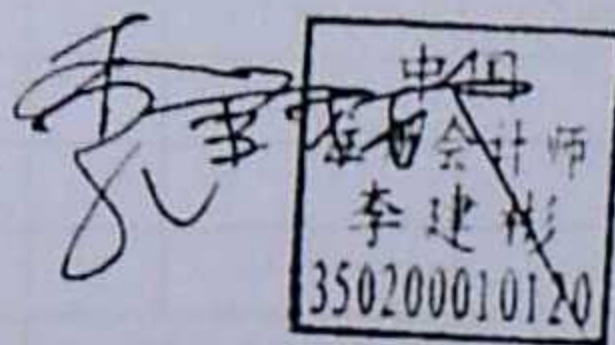 中国
注册会计师
李建彬
350200010120